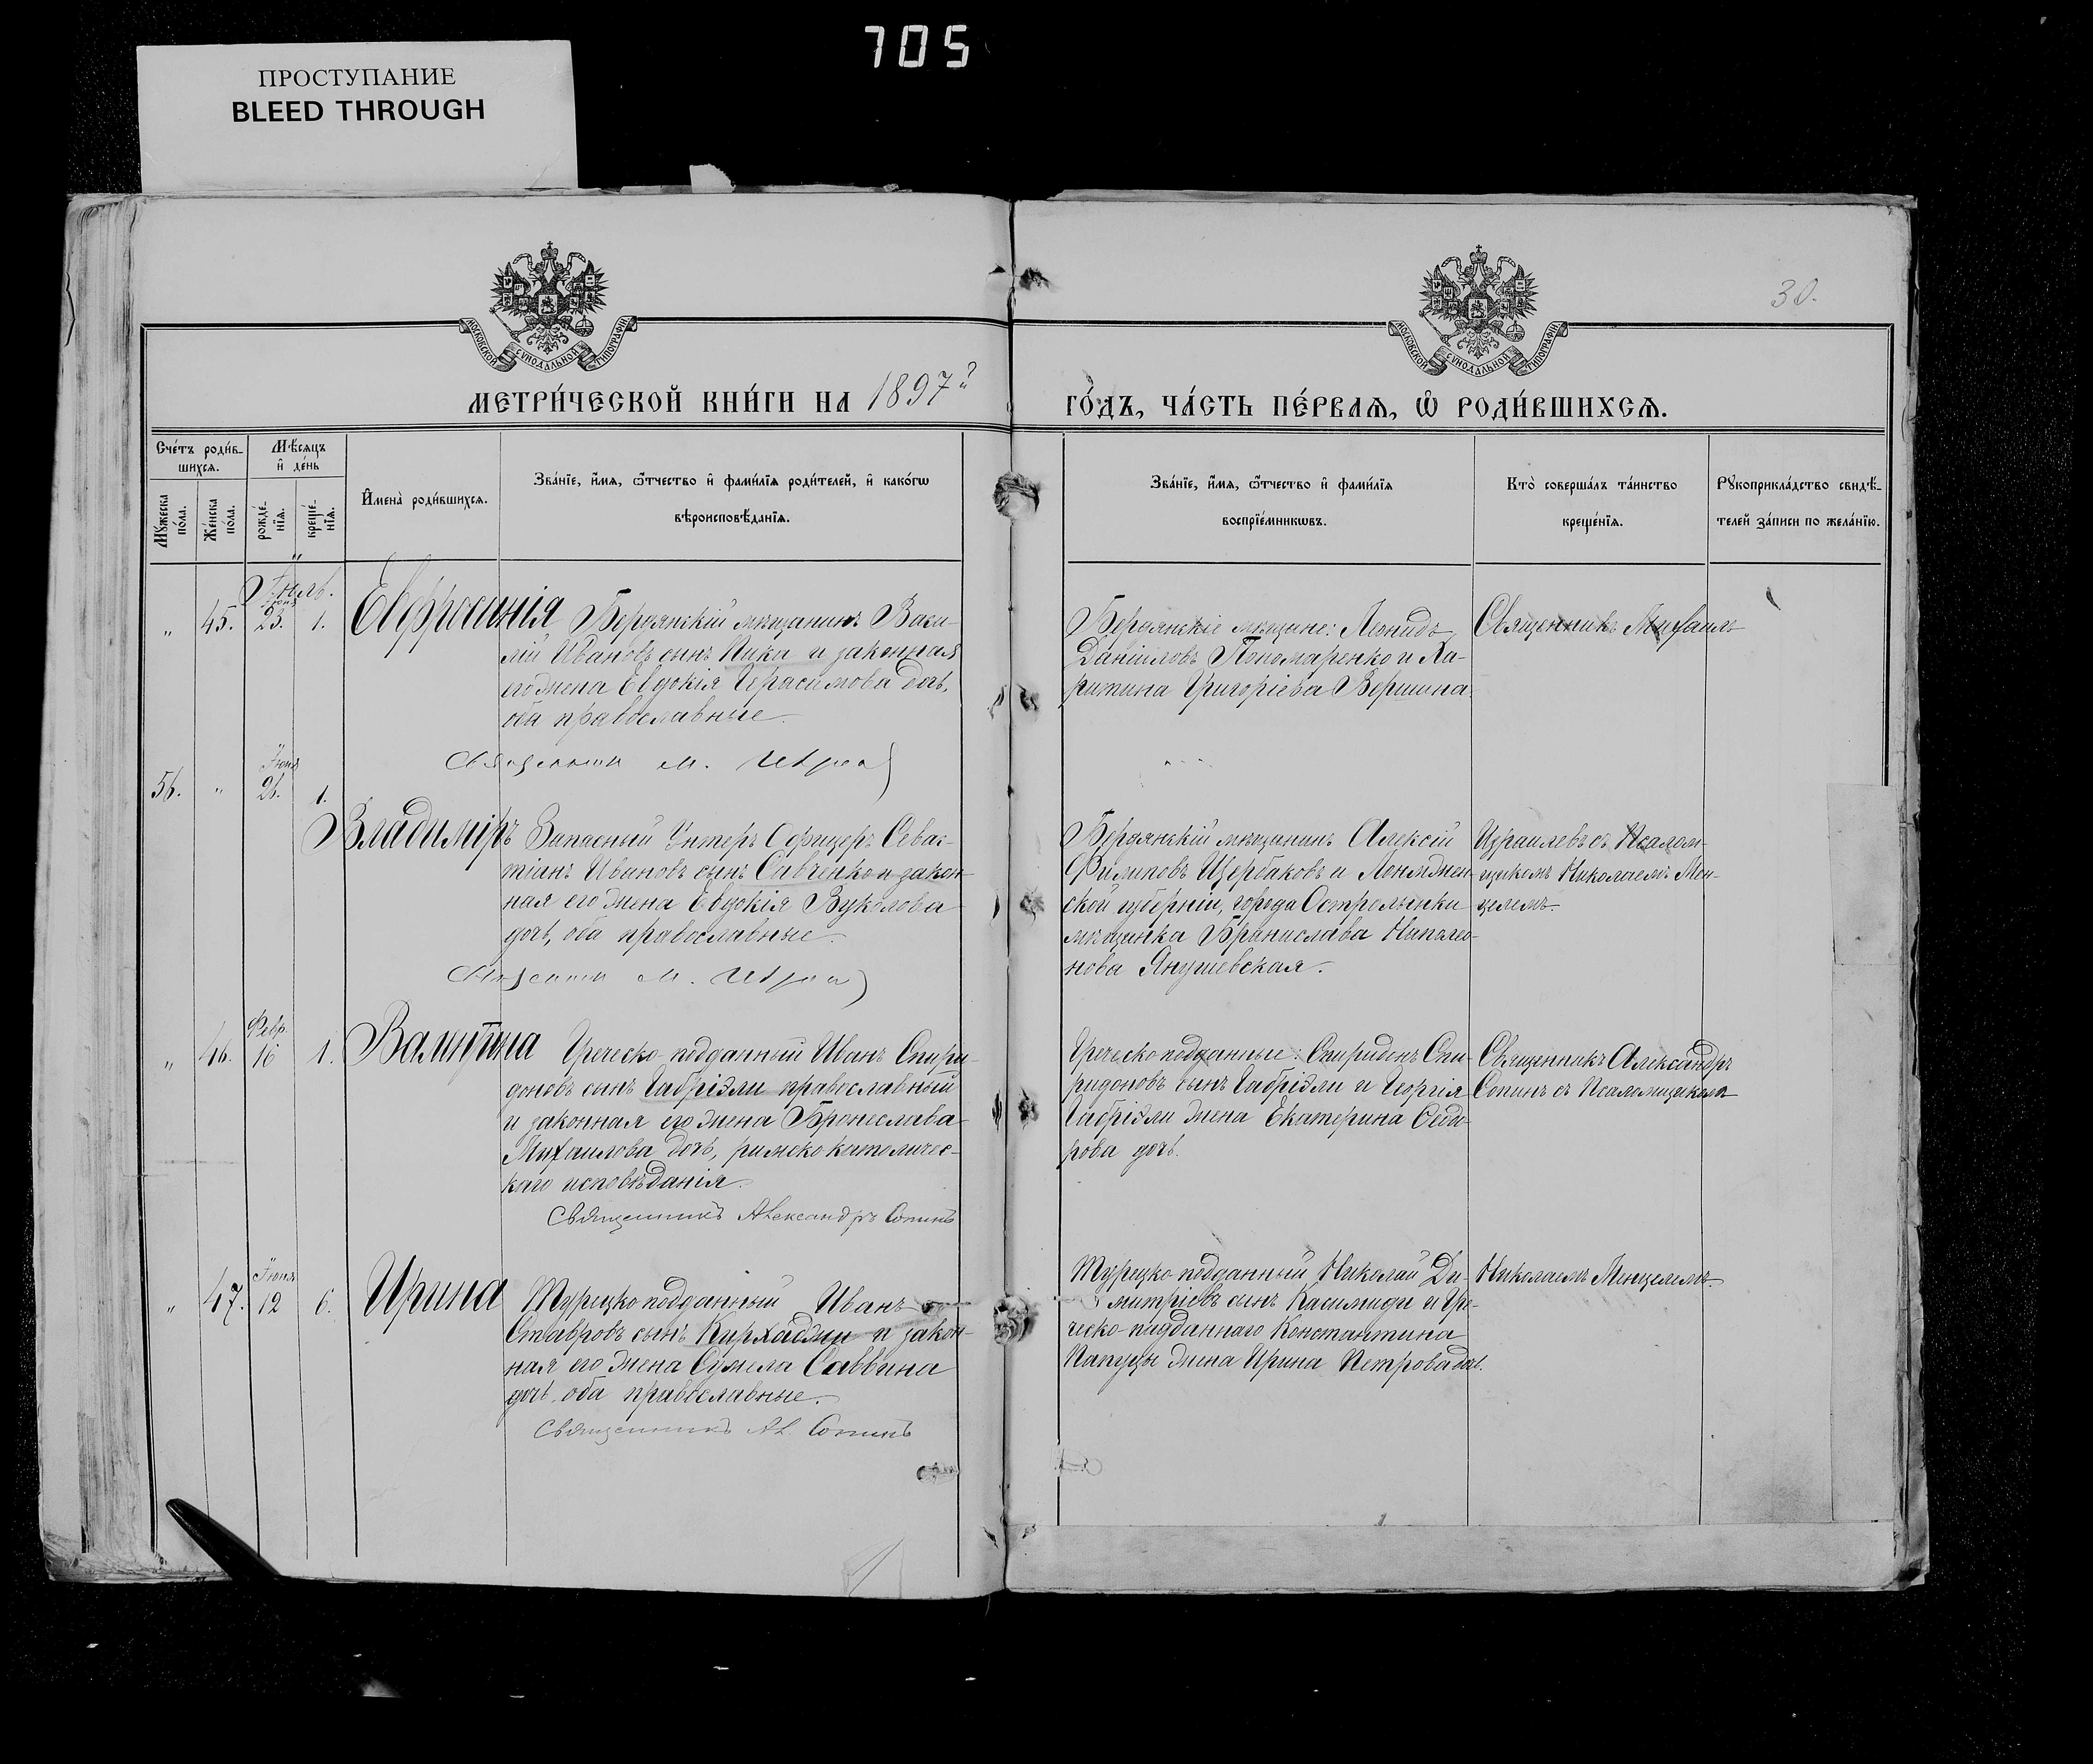 705
ПРОСТУПАНИЕ
BLEED THROUGH
МОСКОВСКОЙ СУНОДАЛЬНОЙ ТИПОГРАФІИ
МОСКОВСКОЙ СУНОДАЛЬНОЙ ТИПОГРАФІИ
30.
МЕТРИ́ЧЕСКОЙ КНИ́ГИ НА 1897й
ГО́ДЪ, ЧА́СТЬ ПЕ́РВАѦ, Ѡ҆ РОДИ́ВШИХСѦ.
Сче́тъ роди́в-
шихсѧ.
Мѣ́сяцъ
и҆ де́нь
Мꙋ́жеска по́ла.
Же́нска по́ла.
рожде́-
нїѧ.
креще́-
нїѧ.
И҆мена̀ роди́вшихсѧ.
Зва́нїе, и҆́мѧ, ѻ҆́тчество и҆ фами́лїѧ роди́телей, и҆ како́гѡ
вѣроисповѣ́данїѧ.
Зва́нїе, и҆́мѧ, ѻ҆́тчество и҆ фами́лїѧ
воспрїе́мникѡвъ.
Кто̀ соверша́лъ та́инство
креще́нїѧ.
Рꙋкоприкла́дство свидѣ́-
телей за́писи по жела́нїю.
Іюль.
" 45. Іюня 23. 1. Евфросинія Бердянскій мѣщанинъ Васи-
лій Ивановъ сынъ Пика и законная
его жена Евдокія Герасимова дочь,
оба православные.
Бердянскіе мѣщане: Леонидъ
Даніиловъ Пономаренко и Ха-
ритина Григоріева Вершина.
Священникъ Михаилъ
Священникъ М.
56. " Іюня 26. 1.
Владиміръ Запасный Унтеръ Офицеръ Севас-
тіанъ Ивановъ сынъ Савченко и закон-
ная его жена Евдокія Вуколова
дочь, оба православные.
Бердянскій мѣщанинъ Алексій
Филиповъ Щербаковъ и Ломжин-
ской губерніи, города Остроленки
мѣщанка Бранислава Наполео-
нова Янушевская.
Израилевъ съ Псалом-
щикомъ Николаемъ Мен-
целемъ.
Священникъ М.
" 46. Февр. 16 1. Валентина Греческо-подданный Иванъ Спири-
доновъ сынъ Габріэли православный
и законная его жена Бронеслава
Михаилова дочь, римско католичес-
каго исповѣданія.
Греческо подданные: Спиридонъ Спи-
ридоновъ сынъ Габріэли и Георгія
Габріэли жена Екатерина Ѳедо-
рова дочь.
Священникъ Александръ
Сопинъ съ Псаломщикомъ
Священникъ Александръ Сопинъ
" 47. Іюня 12 6. Ирина Турецко подданный Иванъ
Ставровъ сынъ Кирхаджи и закон-
ная его жена Сумела Саввина
дочь, оба православные.
Турецко-подданный Николай Ди-
митріевъ сынъ Касимиди и Гре-
ческо-подданнаго Константина
Папуцы жена Ирина Петрова дочь.
Николаемъ Менцелемъ.
Священникъ Ал. Сопинъ